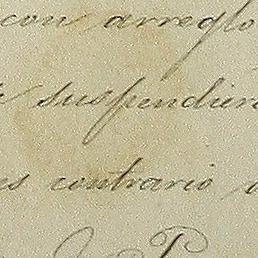 con arreglo
suspendier
es contrario